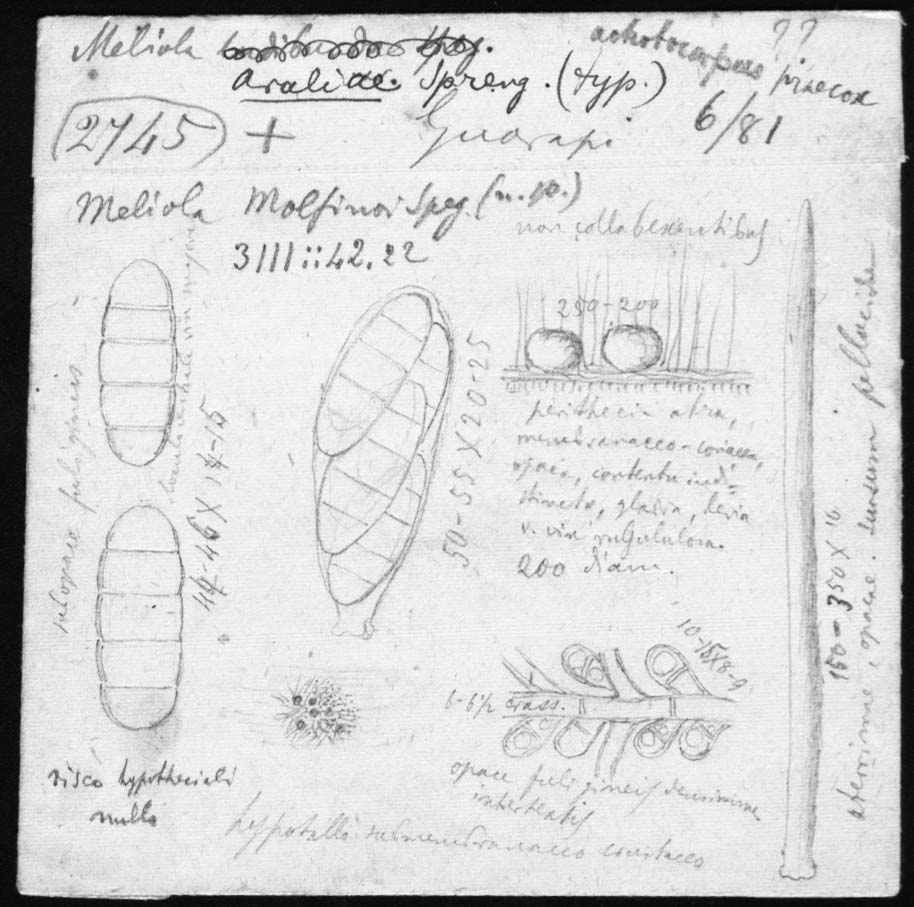 Meliola
Araliae Spreng. (typ.)
achotocarpus praecox
??
2745 +
Guarapi 6/81
Meliola Molfinoi Speg. (n. sp.)
3111::42.22
non collabescentibus
250-200
perithecia atra,
membranaceo-coriacea,
opaca, contextu indi-
stincto, glabra, levia
v. vix rugulosa.
200 diam.
subopace fuligineis
44-46 X 14-15
50-55 X 20-25
10-15X8-9
6-6½ crass.
opace fuligineis densissime
intertextis
150-350X10
aterrimae, opacae. sursum pellucidae
disco hypotheciali
nullo
hypotallo submembranaceo crustaceo